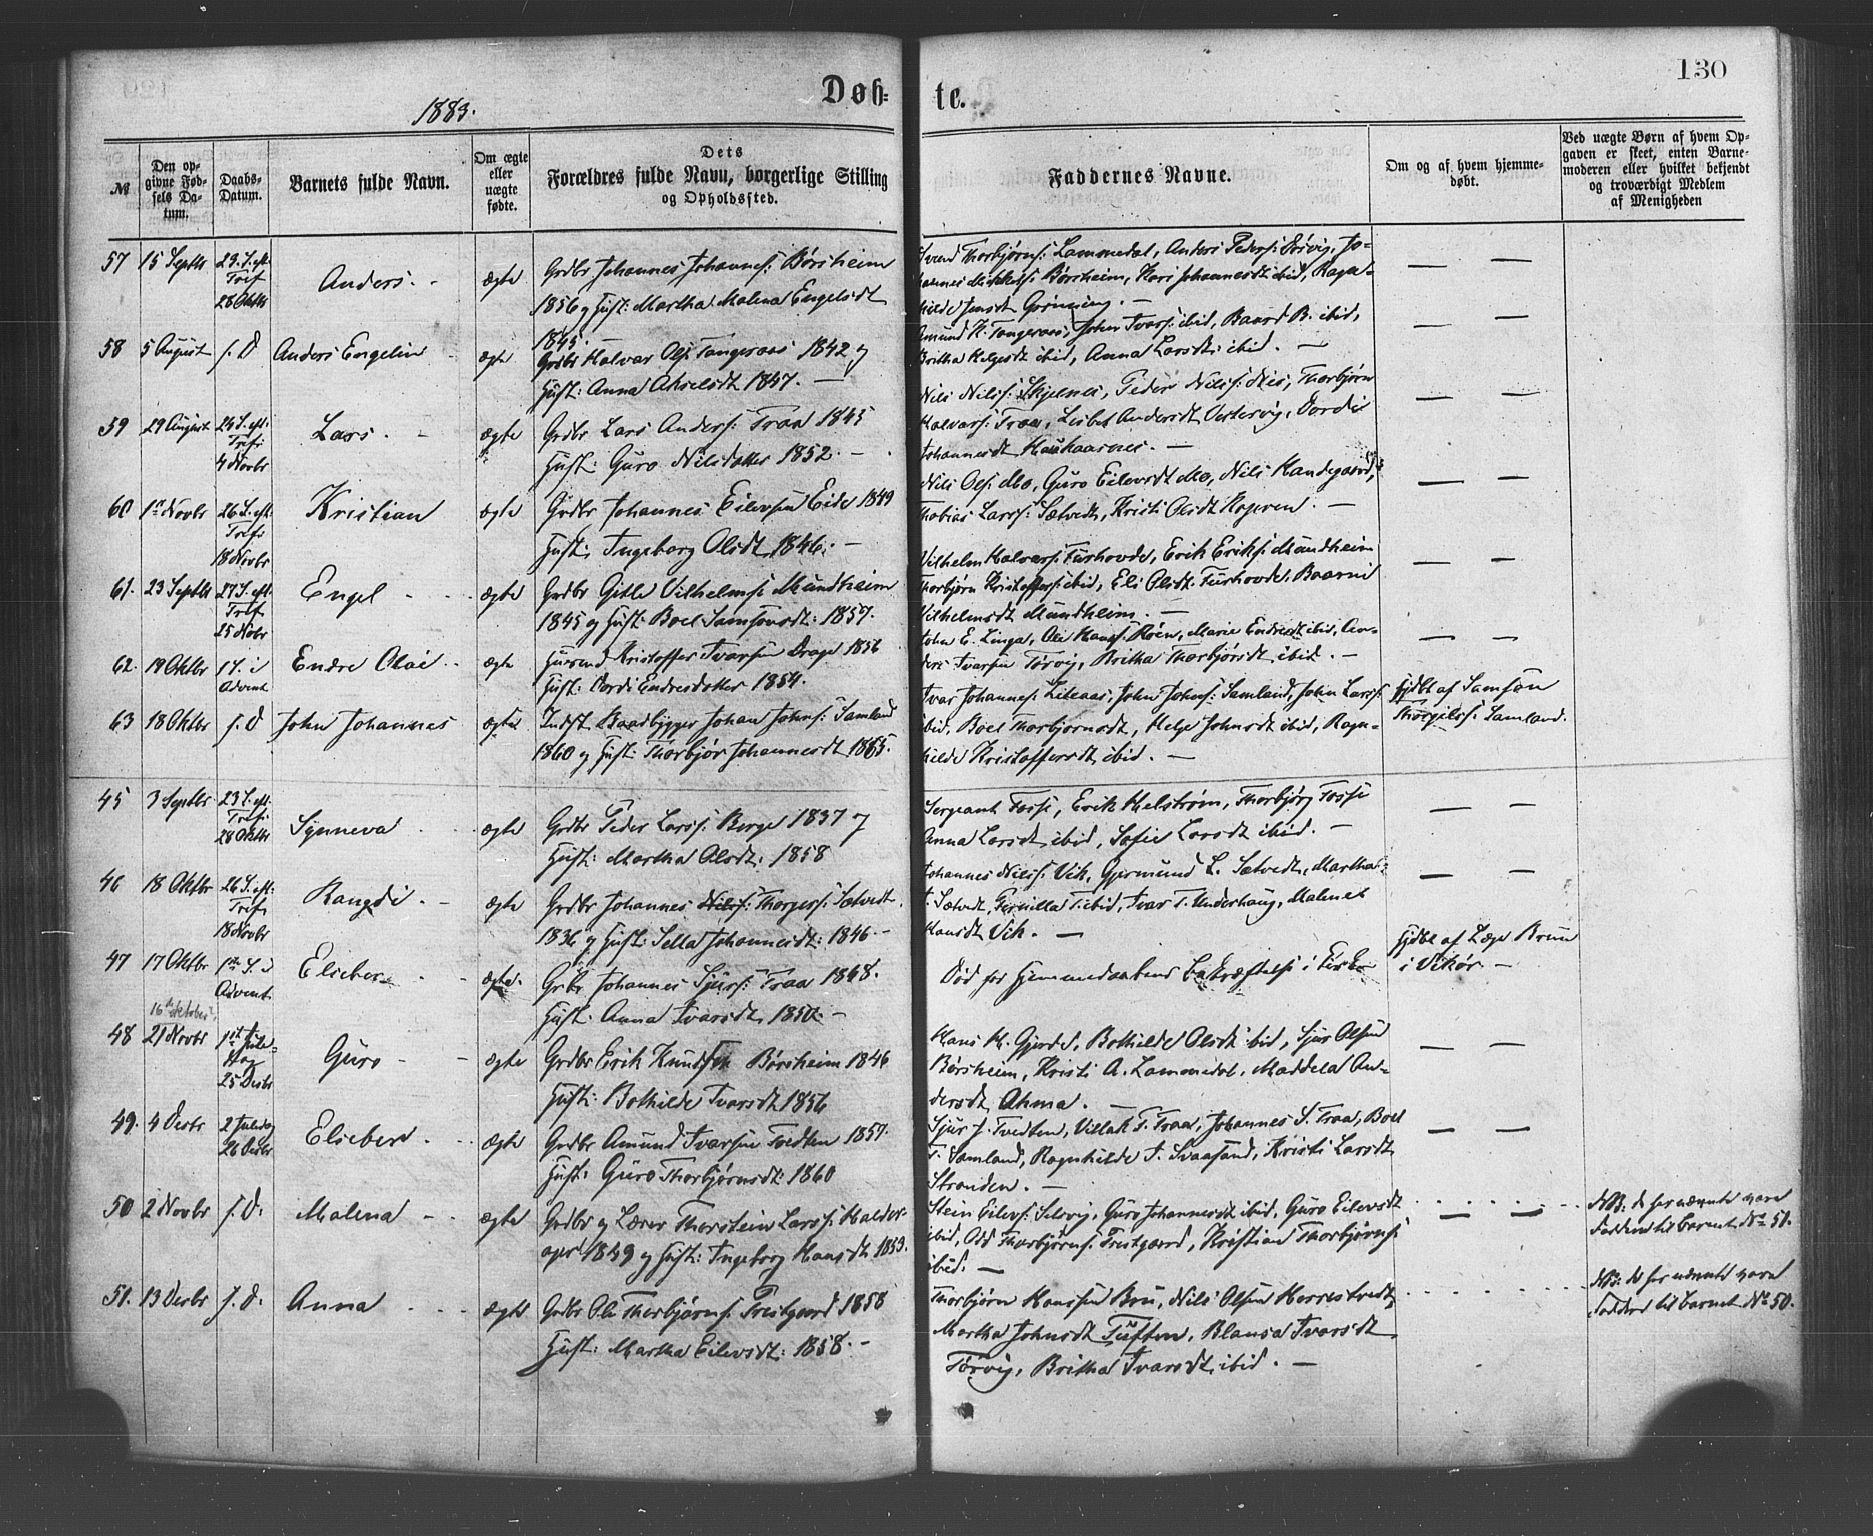 130
Døb-
te.
1883.
№
Den op-
givne Fød-
sels Da-
tum.
Daabs-
Datum.
Barnets fulde Navn.
Om ægte
eller
uægte
fødte.
Dets
Forældres fulde Navn, borgerlige Stilling
og Opholdssted.
Faddernes Navne.
Om og af hvem hjemme-
døbt.
Ved uægte Børn af hvem Op-
gaven er skeet, enten Barne-
moderen eller hvilket bekjendt
og troværdigt Medlem
af Menigheden
57 15 Septbr 23. S. eft. Tref. 28 Oktbr Anders. - ægte
Grdbr Johannes Johannes: Børsheim
1856 og Hust: Martha Malena Engelsdt
1845. —
Svend Thorbjørns: Lammedal, Anders Peders: Jo-
hannes Mikkels: Børsheim, Kari Johannesdt ibid, Ragn-
hilde Jensdt Grønning. —
— —
58 5 August s. D Anders Engelin - ægte
Grdbr Halvar Ols: Tangeraas 1842 og
Hust: Anna Akselsdt 1847. —
Amund H. Tangeraas, John Ivars: ibid, Baard B. ibid,
Britha Helgesdt ibid, Anna Larsdt ibid. —
— —
59 29 August 24 S. eft. Tref. 4 Novbr Lars. - ægte
Grdbr Lars Anders: Traa 1845
Hust: Guro Nilsdatter 1852. —
Nils Nils: Skjelnes, Peder Nils: Nes, Thorbjørn
Halvars: Traa, Lisbet Andersdt Oestervig, Dordei
Johannesdt Haukaanes. —
— —
60 1st Novbr 26 S. eft. Tref. 18 Novbr Kristian ægte
Grdbr Johannes Eilevsen Eide 1849
Hust: Ingeborg Olsdt 1846. —
Nils Ols: Mo, Guro Eilevsdt Mo, Nils Handegaard,
Thobias Larss: Sætvedt, Kristi Olsdt Kopren. —
— —
61. 23 Septbr 27 S. eft. Tref. 25 Novbr Engel - - - ægte
Grdbr Gitle Vilhelms: Mundheim
1845 og Hust: Boel Samsonsdt: 1857.
Vilhelm Halvars: Furhovde, Erik Eriks: Mundheim
Thorbjørn Kristoffers: ibid, Eli Olsdt Furhovde, Baarni
Vilhelmsdt Mundheim. —
— —
62. 19 Oktbr 1 S. i Advent Endre Olai - - ægte
Husmd Kristoffer Ivarsen Drage 1856
Hust: Dordi Endresdatter 1854.
John E. Linga, Ole Hans: Røen, Marie Endresdt ibid, An-
ders Ivarsen Tørvig, Britha Thorbjørsdt ibid. —
— —
63 18 Oktbr s. D John Johannes ægte
Indst Baadbygger Johan Johns: Samland
1860 og Hust: Thorbjør Johannesdt 1865.
Ivar Johannes: Liteaas, John Johns: Samland, John Larss:
ibid, Boel Thorbjørnsdt, Helge Johnsdt ibid, Ragn-
hilde Kristoffersdt ibid. —
Hjdbt af Samson
Thorgilss: Samland.
45 3 Septbr 23 S. eft. Tref. 28 Oktbr Synneva - - ægte
Grdbr Peder Larss: Berge 1837 og
Hust: Martha Olsdt: 1858
Sergeant Fosse, Erik Helstrøm, Thorbjørg Fosse
Anna Larsdt ibid, Sofie Larsdt ibid. —
— —
46 18 Oktbr 26 S. eft. Tref. 18 Novbr Rangdi - - ægte
Grdbr Johannes Nils: Thorgers: Sætvedt
1836 og Hust: Sella Johannesdt: 1846 -
Johannes Nils: Vik, Gjermund L. Sætvedt, Martha
T. Sætvedt, Pernilla T. ibid, Ivar T. Underhaug, Malene
Hansdt Vik. —
— —
47 17 Oktbr 1ste S. i Advent Elsebet - - ægte.
Grdbr Johannes Sjurs: Traa 1848.
Hust: Anna Ivarsdt, 1850. —
Død før Hjemmedaabens Bekræftelse i Kirken
Hjdbt af Læge Brun
i Vikør —
16de oktober?
48 21 Novbr 1st Jule-dag 25 Decbr Guro - - ægte
Grdbr Erik Knudsen Børsheim 1846
Hust: Bothilde Ivarsdt 1856
Hans H. Gjerde, Bothilde Olsdt ibid, Sjur Olsen
Børsheim, Kristi A. Lammedal, Maddela An-
dersdt Aksna. —
— —
49. 4 Decbr 2 Juledag 26 Decbr Elsebet. - - ægte
Grdbr Amund Ivarsen Tvedten 1857.
Hust: Guro Thorbjørnsdt: 1860
Sjur J. Tvedten, Villak T. Traa, Johannes S. Traa, Boel
T. Samland, Ragnhilde J. Svaasand, Kristi Larsdt
Stranden. —
— —
50 2 Novbr s. D. Malena - - ægte
Grdbr og Lærer Thorstein Larss: Halder-
aper 1849 og Hust: Ingeborg Hansdt 1853.
Stein Eilevs: Selsvig, Guro Johannesdt ibid, Guro Eilevsdt
ibid, Odd Thorbjørns: Prestgaard, Kristian Thorbjørns:
ibid. —
— —
NB: de her nævnte vare
Faddere til barnet No 51.
51. 13 Decbr s. D. Anna - - ægte
Grdbr Ole Thorbjørns: Prestgaard 1858
Hust: Martha Eilevsdt: 1858. -
Thorbjørn Hanssen Bru, Nils Olsen Herrestvedt,
Martha Johnsdt Tuften, Blansa Ivarsdt
Tørvig, Britha Ivarsdt ibid. —
NB: de her nævnte vare
Faddere til barnet No 50.